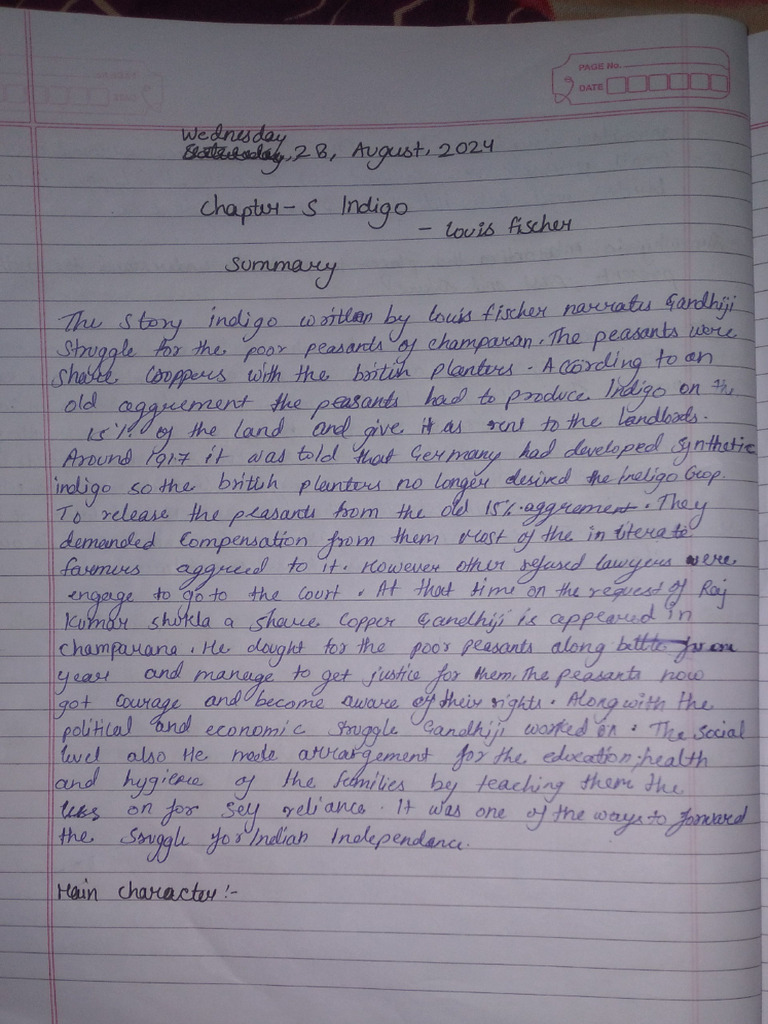 PAGE No.
DATE
Wednesday
28, August, 2024
Chapter-5 Indigo
- Louis Fischer
Summary
The story indigo written by louis fischer narrates Gandhiji
Struggle for the poor peasants of champaran. The peasants were
share croppers with the british planters. According to an
old aggrement the peasants had to produce Indigo on the
15% of the land and give it as rent to the landlords.
Around 1917 it was told that Germany had developed synthetic
indigo so the british planters no longer desired the indigo crop.
To release the peasants from the old 15% aggrement. They
demanded compensation from them most of the initerate
farmers aggreed to it. However other refused lawyers were
engage to go to the court. At that time on the request of Raj
Kumar shukla a share copper Gandhiji is appeared in
champarana. He dought for the poor peasants along
year and manage to get justice for them. The peasants now
got courage and become aware of their rights. Along with the
political and economic struggle Gandhiji worked on. The social
level also He made arrangement for the education, health
and hygiene of the families by teaching them the
on for self reliance. It was one of the ways to forward
the Sruggle for Indian Independance.
Main character :-